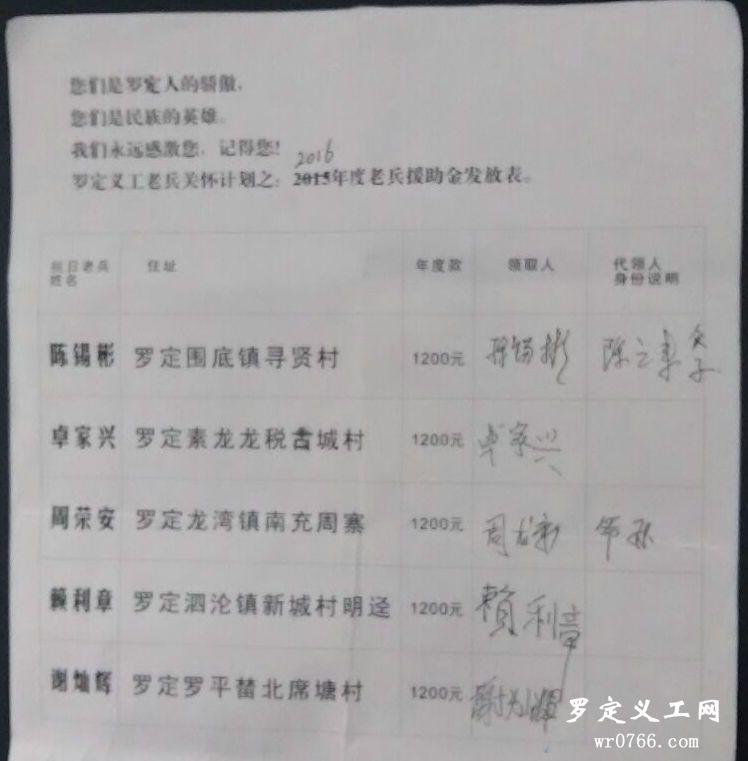 您们是罗定人的骄傲,
您们是民族的英雄。
我们永远感激您,记得您!
2016
罗定义工老兵关怀计划之:2015年度老兵援助金发放表。
抗日老兵姓名 住址 年度款 领取人 代领人身份说明
陈锡彬 罗定围底镇寻贤村 1200元 陈锡彬
卓家兴 罗定素龙龙税古城村 1200元 卓家兴
周荣安 罗定龙湾镇南充周寨 1200元
赖利章 罗定泗沦镇新城村明迳 1200元 賴利章
谢灿辉 罗定罗平替北席塘村 1200元
罗定义工网
wr0766.com